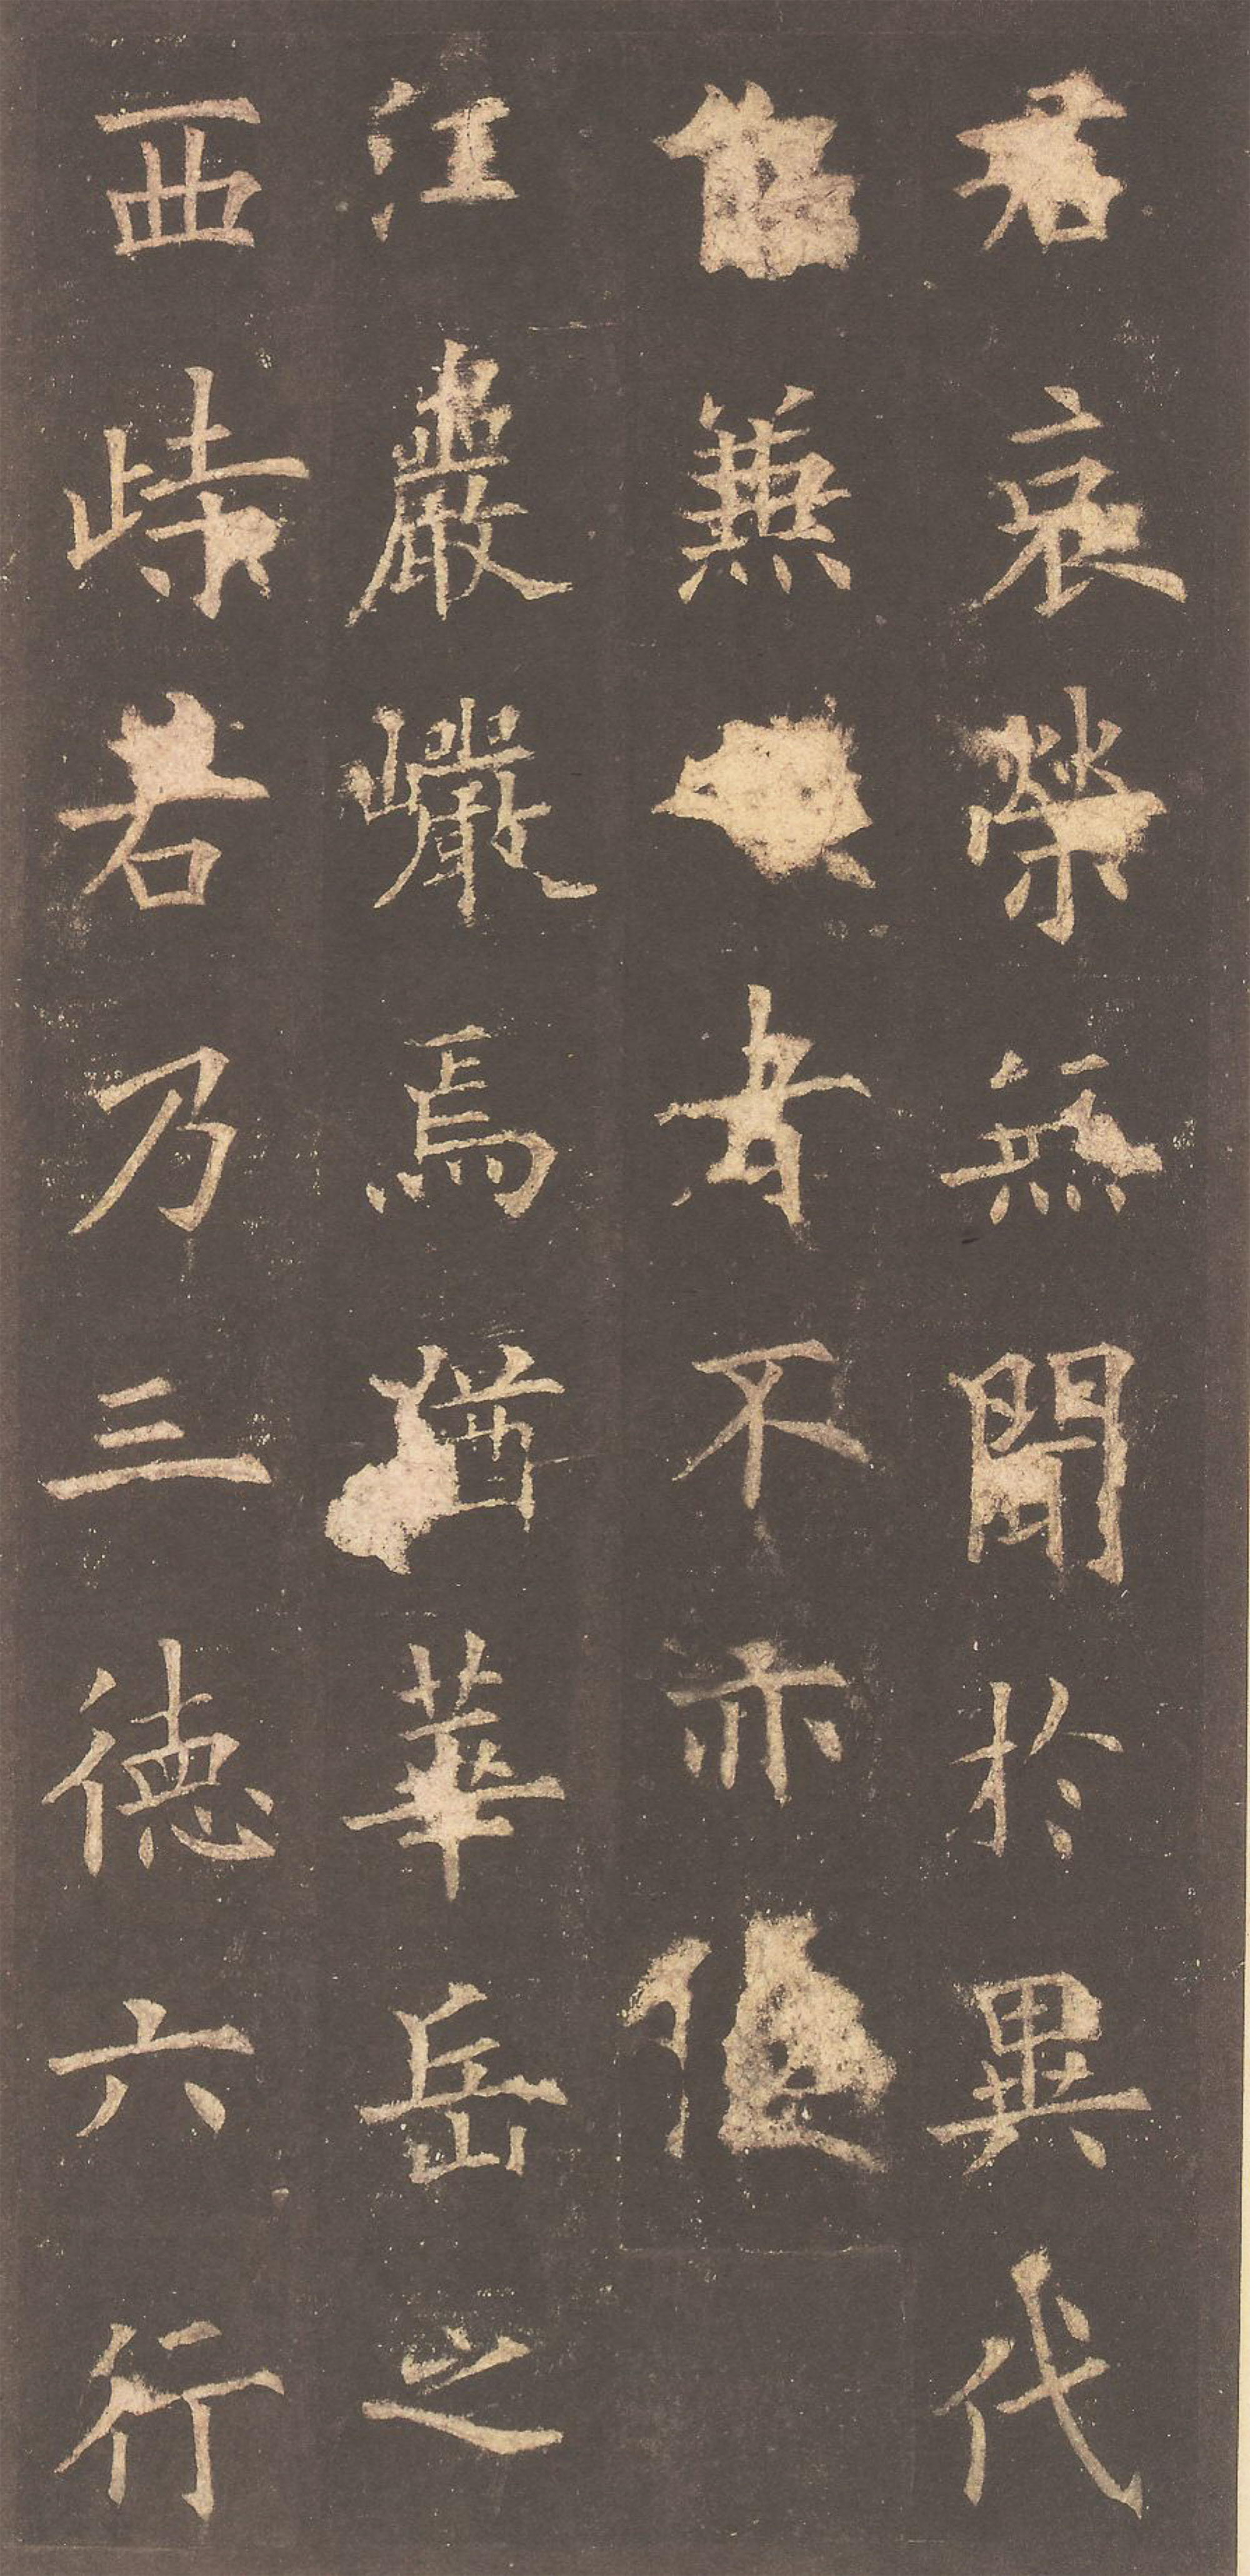 哀榮無聞於異代
兼者不亦
巖巖焉猶華岳之
西峙若乃三德六行